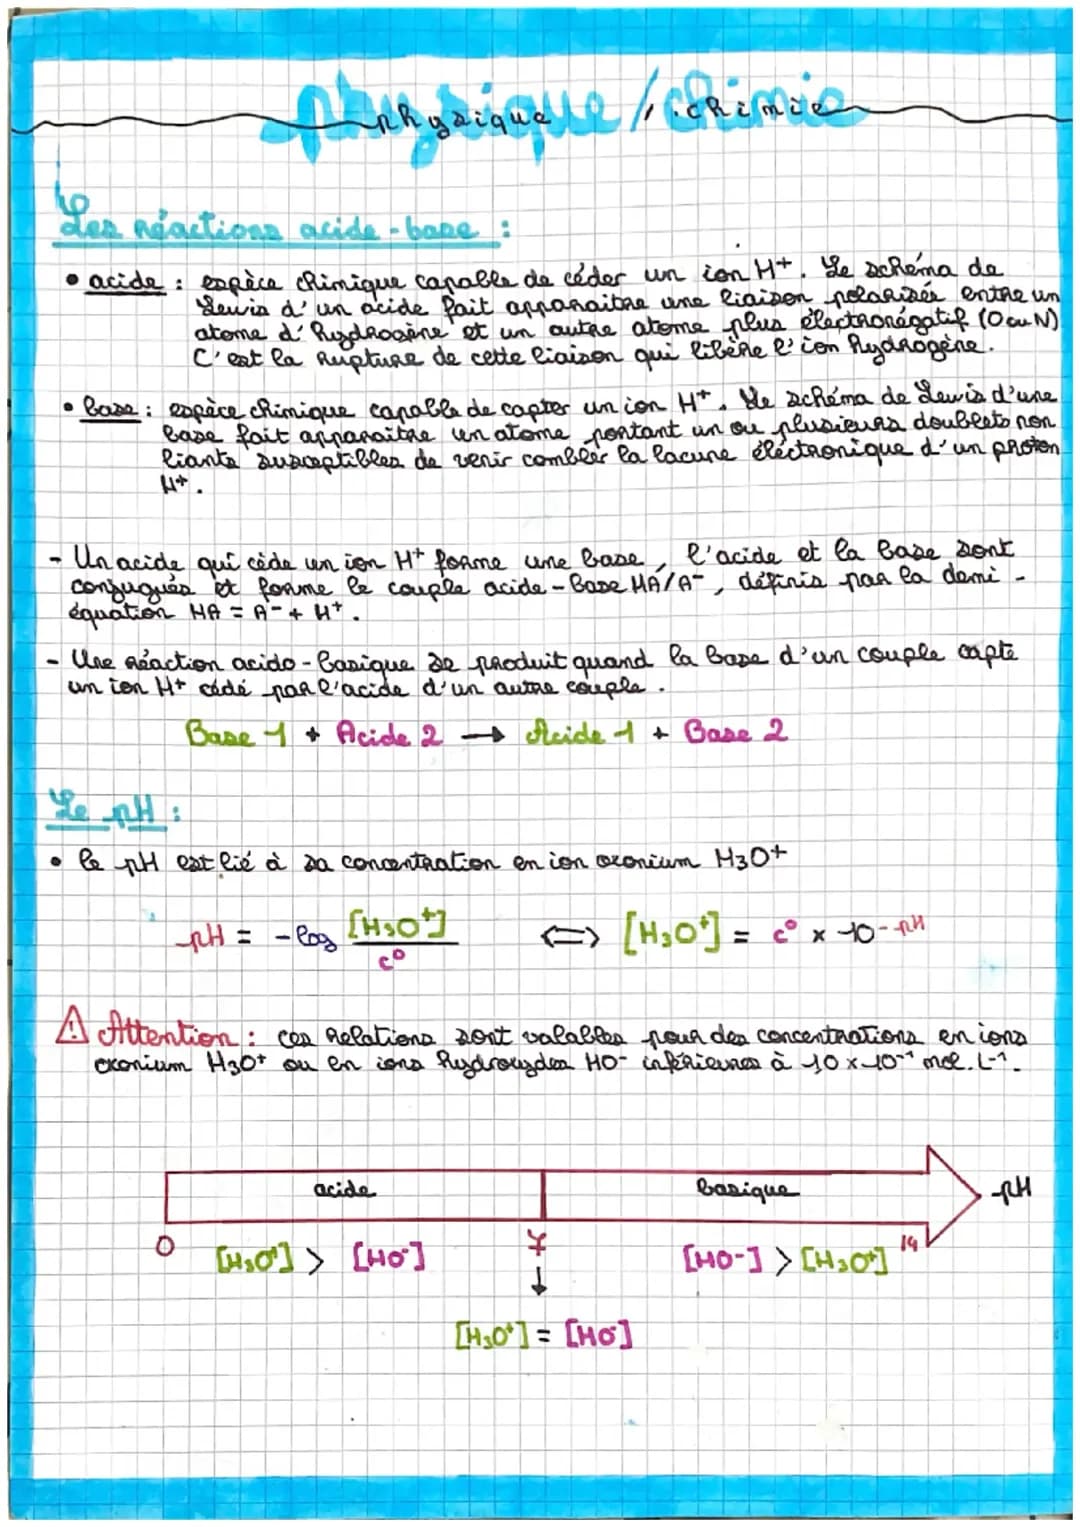 physique / chimie
Les réactions acide-base :
• acide : espèce chimique capable de céder un ion H+. Le schéma de
Lewis d'un acide fait apparaitre une liaison polarisée entre un
atome d'hydrogène et un autre atome plus électronégatif (O ou N)
C'est la rupture de cette liaison qui libère l'ion hydrogène.
• base : espèce chimique capable de capter un ion H+. Le schéma de Lewis d'une
base fait apparaitre un atome portant un ou plusieurs doublets non
liants susceptibles de venir combler la lacune éléctronique d'un proton
H+.
- Un acide qui cède un ion H+ forme une base, l'acide et la base sont
conjugués et forme le couple acide-base HA/A-, définis par la demi-
équation HA = A- + H+.
- Une réaction acido-basique se produit quand la base d'un couple capte
un ion H+ cédé par l'acide d'un autre couple.
Base 1 + Acide 2 → Acide 1 + Base 2
Le pH :
• le pH est lié à sa concentration en ion oxonium H3O+
pH = -log [H3O+]/c° <=> [H3O+] = c° x 10-pH
⚠ Attention : ces relations sont valables pour des concentrations en ions
oxonium H3O+ ou en ions hydroxydes HO- inférieures à 10 x 10-1 mol.L-1.
acide basique pH
0 7 14
[H3O+] > [HO-] [HO-] > [H3O+]
↓
[H3O+] = [HO-]